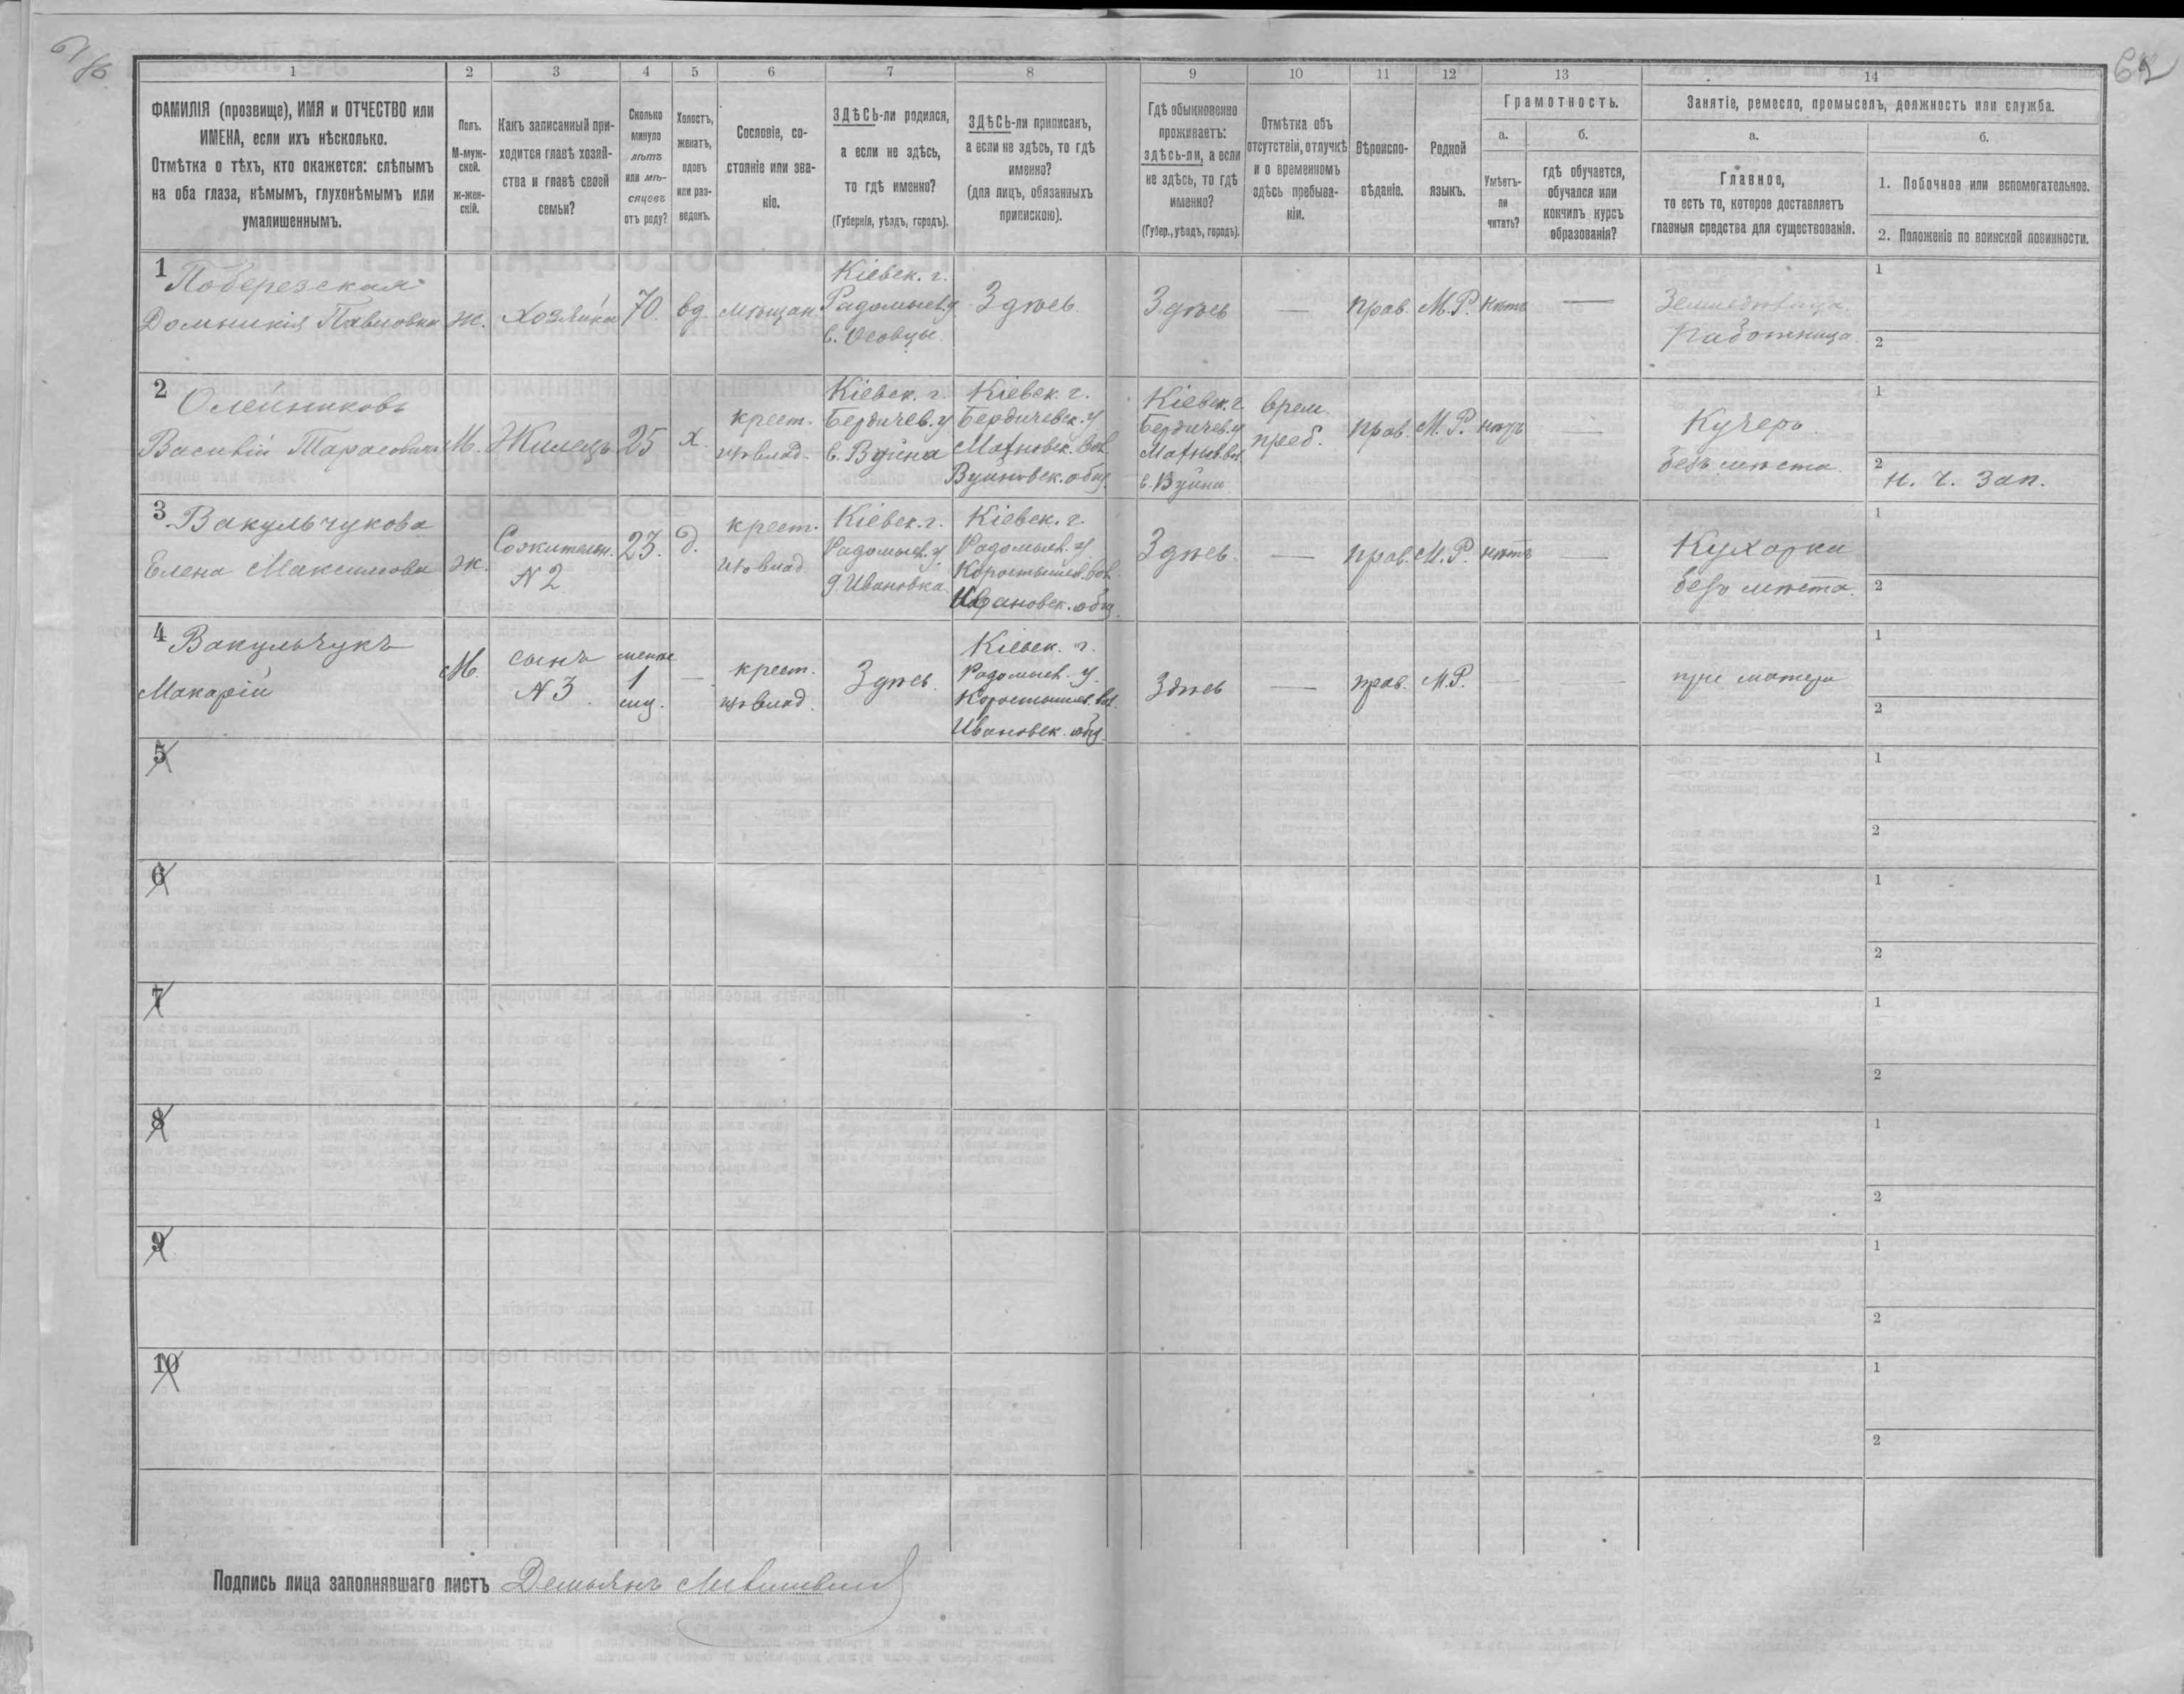 62
1
2
3
4
5
6
7
8
9
10
11
12
13
14
ФАМИЛІЯ (прозвище), ИМЯ и ОТЧЕСТВО или
ИМЕНА, если ихъ нѣсколько.
Отмѣтка о тѣхъ, кто окажется: слѣпымъ
на оба глаза, нѣмымъ, глухонѣмымъ или
умалишеннымъ.
Полъ.
М-муж-
ской.
ж-жен-
скій.
Какъ записанный при-
ходится главѣ хозяй-
ства и главѣ своей
семьи?
Сколько
минуло
лѣтъ
или мѣ-
сяцевъ
отъ роду?
Холостъ,
женатъ,
вдовъ
или раз-
веденъ.
Сословіе, со-
стояніе или зва-
ніе.
ЗДѢСЬ-ли родился,
а если не здѣсь,
то гдѣ именно?
(Губернія, уѣздъ, городъ).
ЗДѢСЬ-ли приписанъ,
а если не здѣсь, то гдѣ
именно?
(для лицъ, обязанныхъ
припискою).
Гдѣ обыкновенно
проживаетъ:
здѣсь-ли, а если
не здѣсь, то гдѣ
именно?
(Губер., уѣздъ, городъ).
Отмѣтка объ
отсутствіи, отлучкѣ
и о временномъ
здѣсь пребыва-
ніи.
Вѣроиспо-
вѣданіе.
Родной
языкъ.
Грамотность.
а.
Умѣетъ-
ли
читать?
б.
гдѣ обучается,
обучался или
кончилъ курсъ
образованія?
Занятіе, ремесло, промыселъ, должность или служба.
а.
Главное,
то есть то, которое доставляетъ
главныя средства для существованія.
б.
1. Побочное или вспомогательное.
2. Положеніе по воинской повинности.
1
Поберезская
Домникія Павловна
ж.
Хозяйка
70.
вд.
мѣщан.
Кіевск. г.
Радомысл. у
с. Осовцы.
Здѣсь
Здѣсь
—
прав.
М.Р.
нѣтъ
—
Работница.
1
2
2
Олейниковъ
Василій Тарасовичъ
М.
Жилецъ
25
х.
крест.
из влад.
Кіевск. г.
Бердичев. у
с. Вуйна
Кіевск. г.
Бердичевск. у
Махновск. вол.
Вуйновск. общ.
Кіевск. г
Бердичев. у
Махнов. вол
с. Вуйна
врем.
преб.
прав.
М.Р.
нѣтъ
—
Кучеръ.
безъ мѣста.
1
2
н. ч. зап.
3
Вакульчукова
Елена Максимова
ж.
Сожительн.
N 2
23.
д.
крест.
из влад.
Кіевск. г.
Радомысл. у.
д. Ивановка.
Кіевск. г.
Радомысл. у.
Коростышев. вол.
Ивановск. общ.
Здѣсь.
—
прав.
М.Р.
нѣтъ
—
Кухарка
безъ мѣста.
1
2
4
Вакульчукъ
Макарій
М.
сынъ
N 3
менѣе
1
мц.
—
крест.
из влад.
Здѣсь.
Кіевск. г.
Радомысл. у.
Коростышев. вол.
Ивановск. общ.
Здѣсь
—
прав.
М.Р.
—
—
при матери
1
2
5
1
2
6
1
2
7
1
2
8
1
2
9
1
2
10
1
2
Подпись лица заполнявшаго листъ Демьянъ